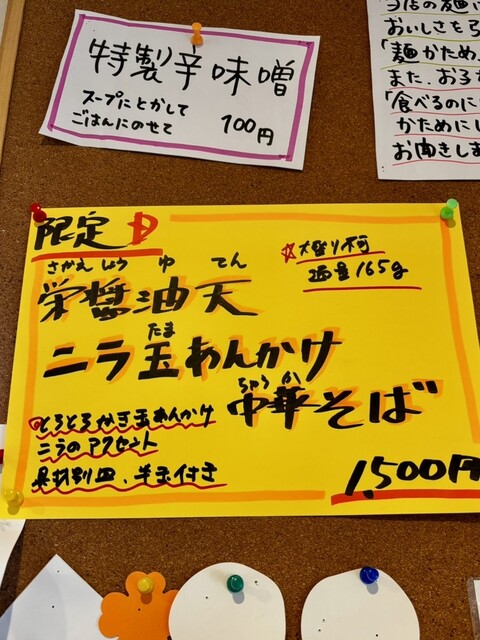 特製辛味噌
スープにとかして
ごはんにのせて
100円
当店の麺に
おいしさを
「麺かため、
また、お
「食べるのに
かためにし
お聞きしま
限定
☆大盛り不可
通量165g
さかえ しょう ゆ てん
栄醤油天
たま
ニラ玉あんかけ
ちゅう か
中華そば
とろとろかき玉あんかけ
ニラのアクセント
具材別皿、半玉付き
1,500円